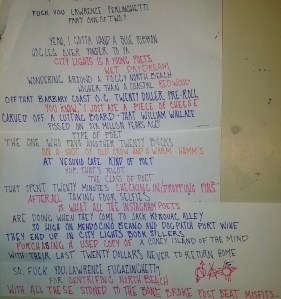 FUCK YOU LAWRENCE FERLINGHETTI
PART ONE OF TWO?
YEAH, I GOTTA HAND A BLUE RIBBON
UNCLED OVER FINGER TO YA
CITY LIGHTS IS A YOUNG POETS
WET DAYDREAM
WANDERING AROUND A FOGGY NORTH BEACH
HIGHER THAN A COASTAL REDWOOD
OFF THAT BARBARY COAST O.G. TWENTY DOLLER PRE-ROLL
YOU KNOW, I JUST ATE A PIECE OF CHEESE
CARVED OFF A CUTTING BOARD - THAT WILLIAM WALLACE
PISSED ON SIX MILLION YEARS AGO
TYPE OF POET
THE ONE WHO PAYS ANOTHER TWENTY BUCKS
ON A SHOT OF OLD CROW AND A WARM HAMM'S
AT VESUVIO CAFE KIND OF POET
YUP, THAT'S RIGHT
THE CLASS OF POET
THAT SPENT TWENTY MINUTES CHECKING IN/DROPPING PINS
AFTER ALL TAKING FOUR SELFIES
IS WHAT ALL THE INSTAGRAM POETS
ARE DOING WHEN THEY COME TO JACK KEROUAC ALLEY
SO HIGH ON MENDOCINO BLEND AND DOGPATCH PORT WINE
THEY END UP IN CITY LIGHTS BOOK SELLERS
PURCHASING A USED COPY OF A CONEY ISLAND OF THE MIND
WITH THEIR LAST TWENTY DOLLARS NEVER TO RETURN HOME
SO, FUCK YOU, LAWRENCE FUGAZINGHETTY
FOR GENTRIFYING NORTH BEACH
WITH ALL THESE STONED TO THE BONE BROKE POST BEAT MISFITS